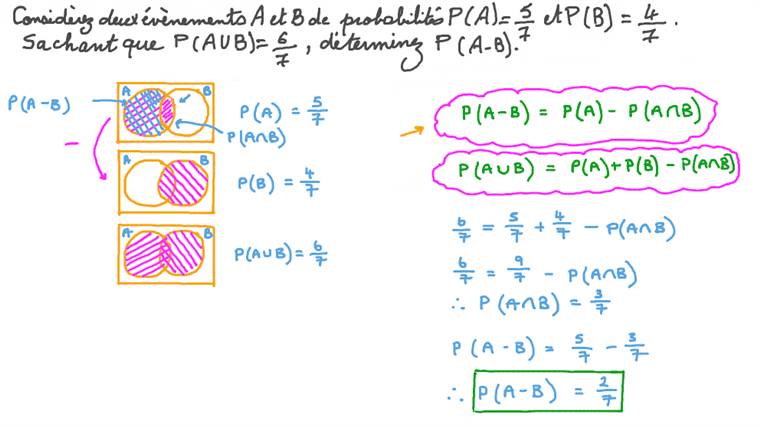 Considérez deux évènements A et B de probabilités P(A) = 5/7 et P(B) = 4/7.
Sachant que P(A∪B) = 6/7, déterminez P(A-B).
P(A-B)
A B
P(A) = 5/7
P(A∩B)
A B
P(B) = 4/7
A B
P(A∪B) = 6/7
P(A-B) = P(A) - P(A∩B)
P(A∪B) = P(A) + P(B) - P(A∩B)
6/7 = 5/7 + 4/7 - P(A∩B)
6/7 = 9/7 - P(A∩B)
∴ P(A∩B) = 3/7
P(A-B) = 5/7 - 3/7
∴ P(A-B) = 2/7